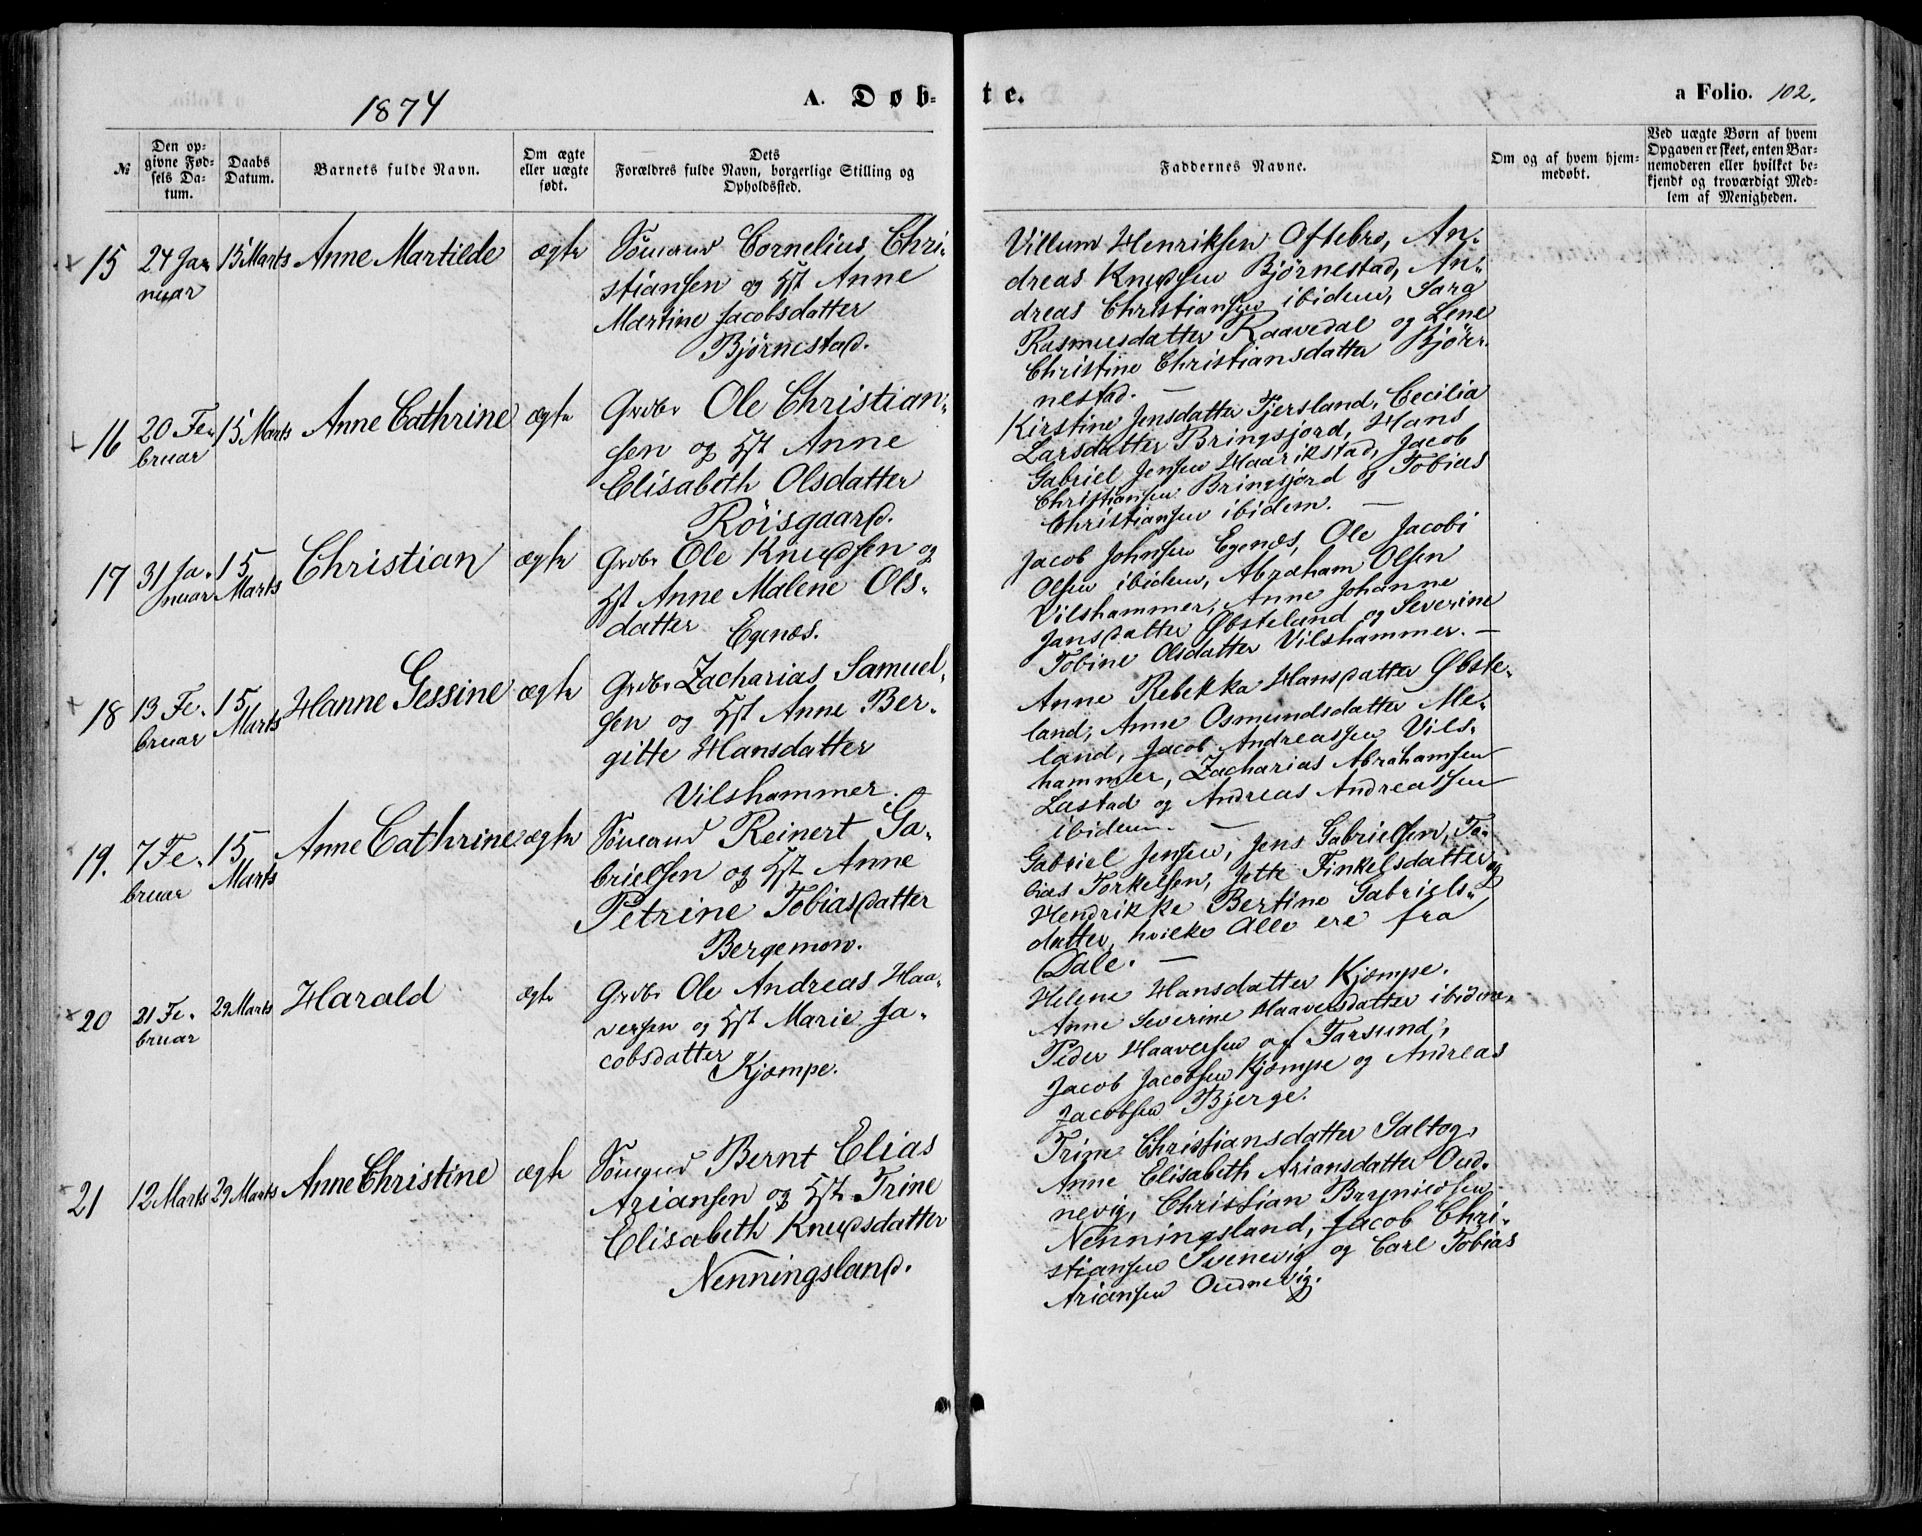 1874
A. Døb-
te.
a Folio. 102.
№
Den op-
givne Fød-
sels Da-
tum.
Daabs
Datum.
Barnets fulde Navn.
Om ægte
eller uægte
født.
Dets
Forældres fulde Navn, borgerlige Stilling og
Opholdssted.
Faddernes Navne.
Om og af hvem hjem-
medøbt.
Ved uægte Børn af hvem
Opgaven er skeet, enten Bar-
nemoderen eller hvilket be-
kjendt og troværdigt Med-
lem af Menigheden.
15
24 Ja-
nuar
15 Marts
Anne Martilde
ægte
Sömand Cornelius Chri-
stiansen og Hst Anne
Martine Jacobsdatter
Bjørnestad.
Villum Henriksen Oftebro, An-
dreas Knudsen Bjørnestad, An-
dreas Christiansen ibidem, Sara
Rasmusdatter Raavedal og Lene
Christine Christiansdatter Björ-
nestad. —
16
20 Fe-
bruar
15 Marts
Anne Cathrine
ægte
Grdbr Ole Christian-
sen og Hst Anne
Elisabeth Olsdatter
Röisgaard.
Kirstine Jensdatter Fjersland, Cecilia
Larsdatter Bringsjord, Hans
Gabriel Jensen Haarikstad, Jacob
Christiansen Bringsjord og Tobias
Christiansen ibidem. —
17
31 Ja-
nuar
15
Marts
Christian
ægte
Grdbr Ole Knudsen og
Hst Anne Malene Ols-
datter Egenæs.
Jacob Johnsen Egenæs, Ole Jacobi
Olsen ibidem, Abraham Olsen
Vilshammer, Anne Johanne
Jansdatter Øbsteland og Severine
Tobine Olsdatter Vilshammer. —
18
13 Fe-
bruar
15
Marts
Hanne Gessine
ægte
Grdbr Zacharias Samuel-
sen og Hst Anne Ber-
gitte Hansdatter
Vilshammer.
Anne Rebekka Hansdatter Øbste-
land, Anne Osmundsdatter Me-
land, Jacob Andreassen Vils-
hammer, Zacharias Abrahamsen
Lastad og Andreas Andreassen
ibidem. —
19.
7 Fe-
bruar
15
Marts
Anne Cathrine
ægte
Sömand Reinert Ga-
brielsen og Hst Anne
Petrine Tobiasdatter
Bergemoen.
Gabriel Jensen, Jens Gabrielsen, To-
bias Torkelsen, Jette Finkelsdatter og
Hendrikke Bertine Gabriels-
datter, hvilke Alle ere fra
Dale. —
20
21 Fe-
bruar
29 Marts
Harald
ægte
Grdbr Ole Andreas Haa-
versen og Hst Marie Ja-
cobsdatter
Kjæmpe.
Helene Hansdatter Kjæmpe.
Anne Severine Haaversdatter ibidem,
Peder Haaversen af Farsund,
Jacob Jacobsen Kjæmpe og Andreas
Jacobsen Bjerge.
21
12 Marts
29 Marts
Anne Christine
ægte
Sömand Bernt Elias
Ariansen og Hst Trine
Elisabeth Knudsdatter
Nenningsland.
Trine Christiansdatter Saltog,
Anne Elisabeth Ariansdatter Oud-
nevig, Christian Brynildsen
Nenningsland, Jacob Chri-
stiansen Svenevig og Carl Tobias
Ariansen Oudnevig.